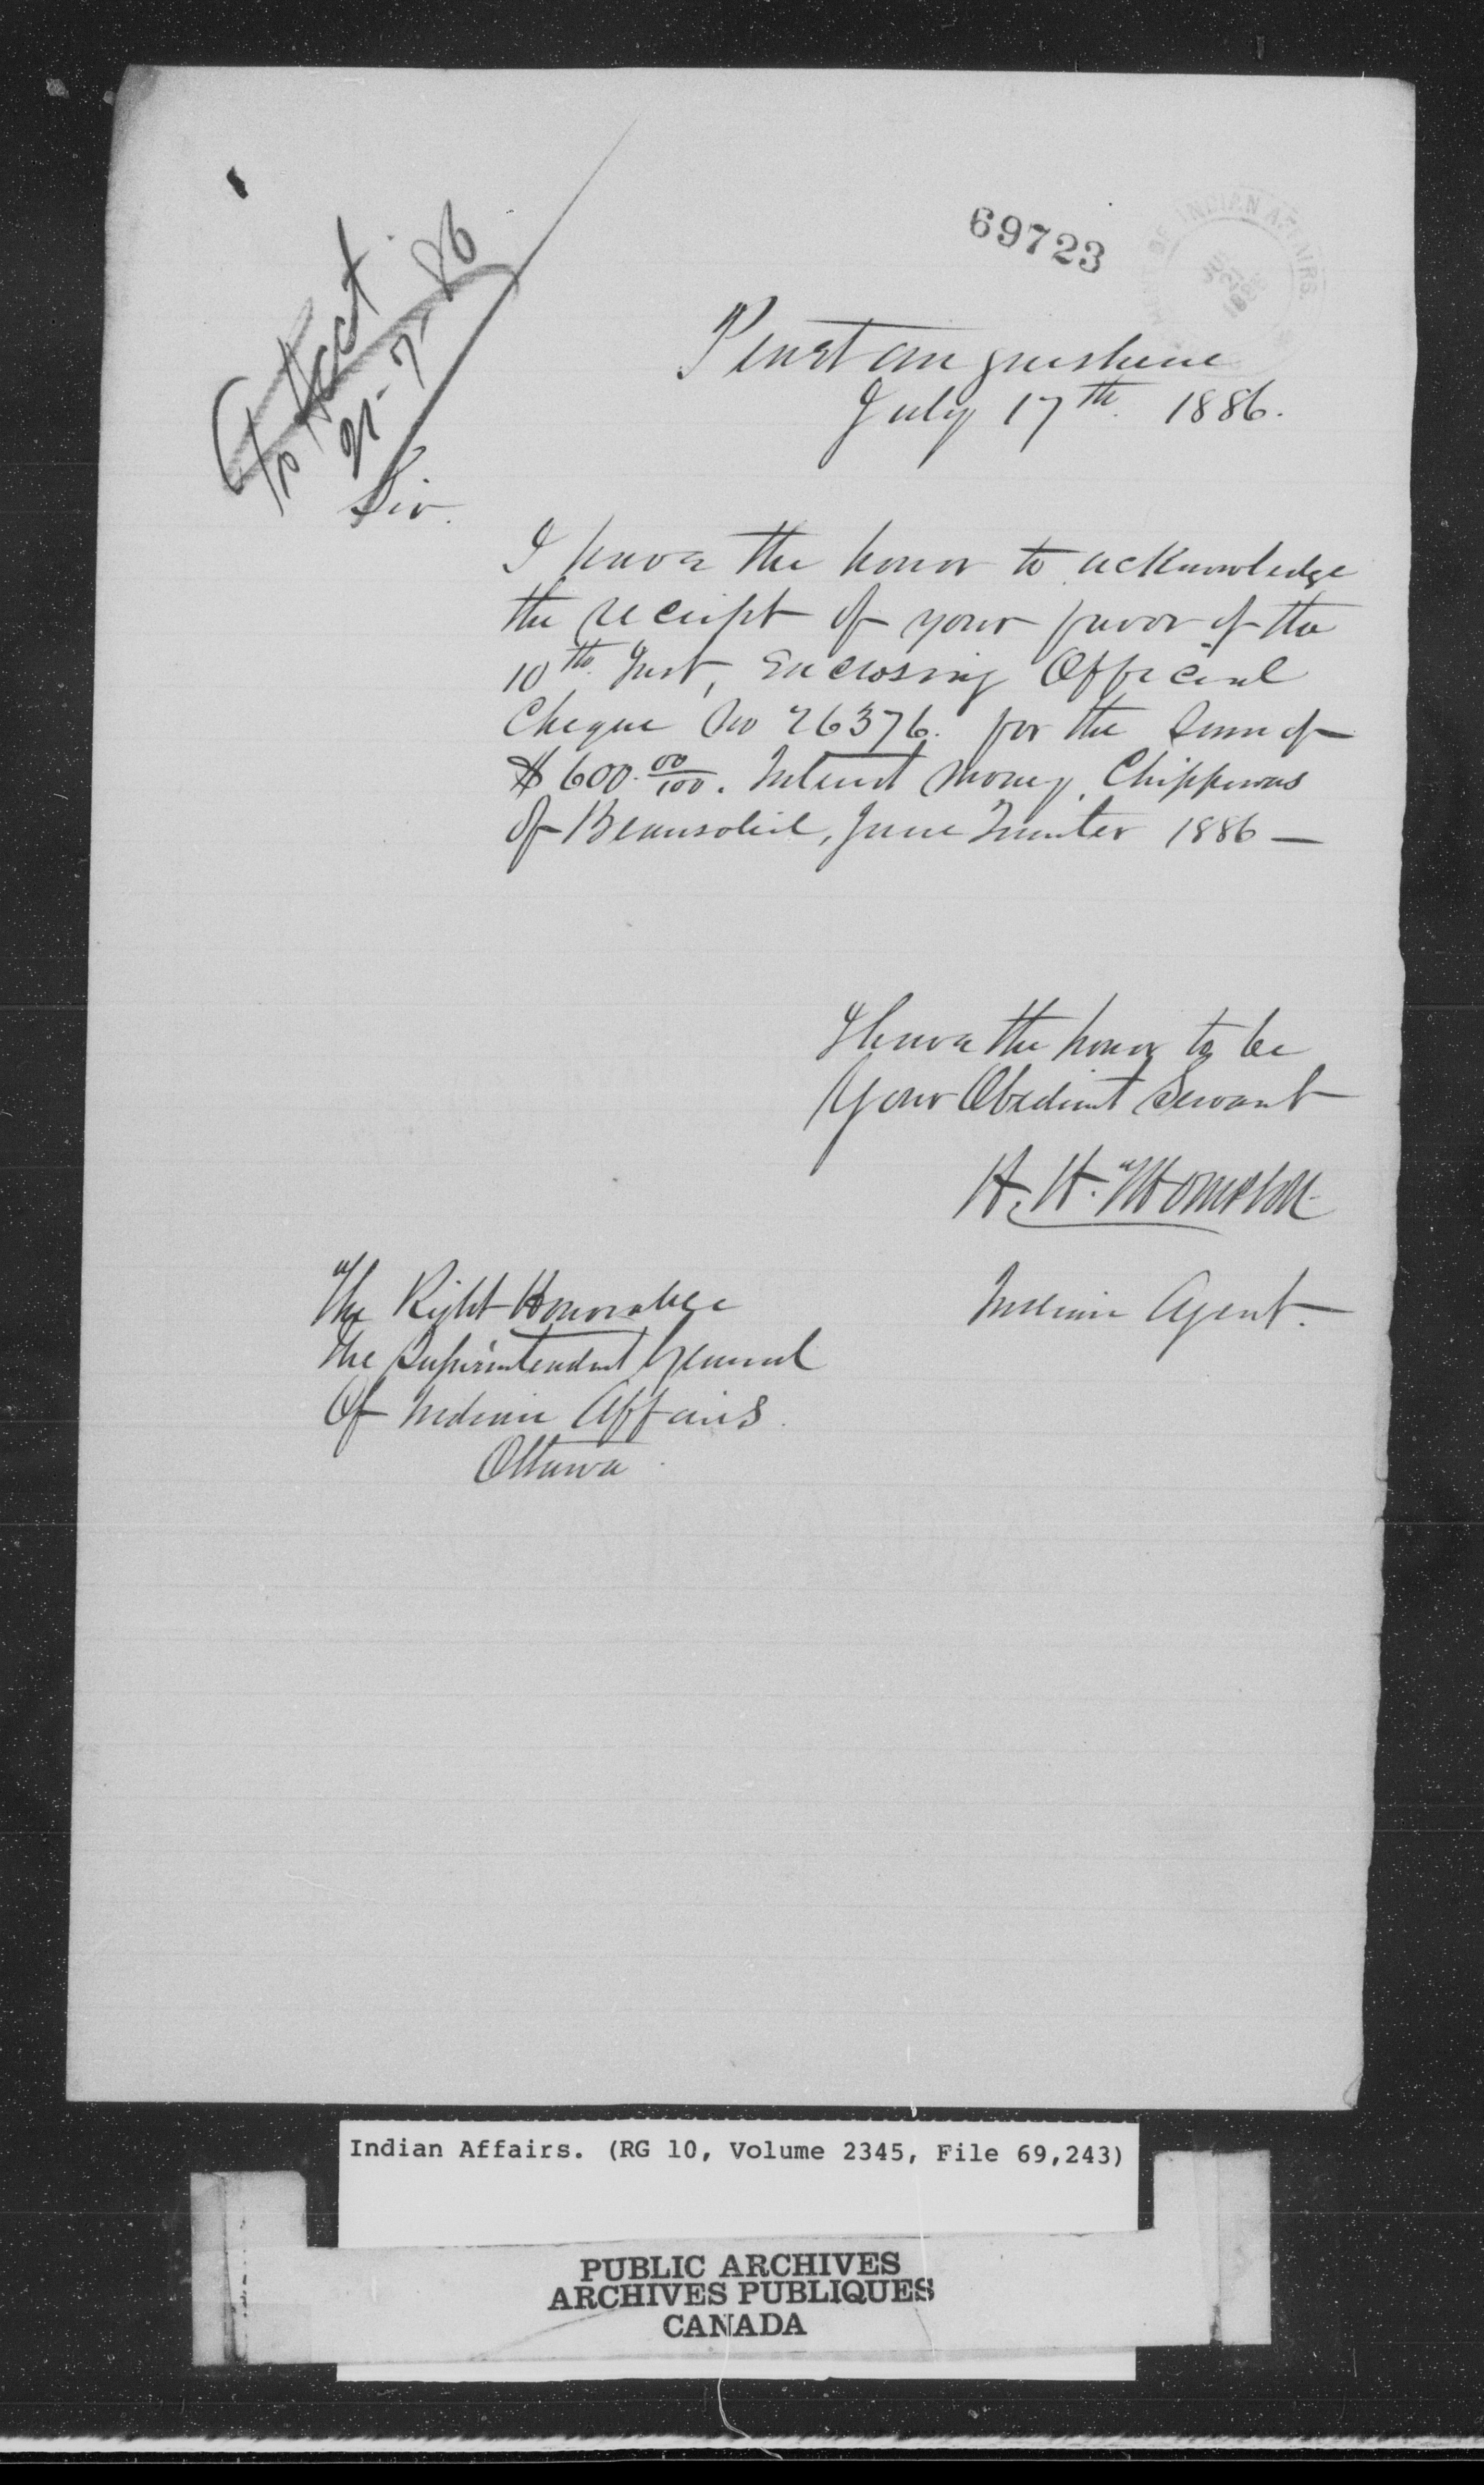 69723
INDIAN AFFAIRS
To Acct
21-7-86
Penetanguishene
July 17th 1886.
Sir.
I have the honor to acknowledge
the receipt of your favor of the
10th Inst, Enclosing Official
Cheque No 26376. for the Sum of
$600.00/100. Interest Money, Chippewas
Of Beausoliel, June Quarter 1886 —
I have the honor to be
Your Obedient Servant
H. H. Thompson
Indian Agent.
The Right Honorable
The Superintendent General
Of Indian Affairs.
Ottawa.
Indian Affairs. (RG 10, Volume 2345, File 69,243)
PUBLIC ARCHIVES
ARCHIVES PUBLIQUES
CANADA